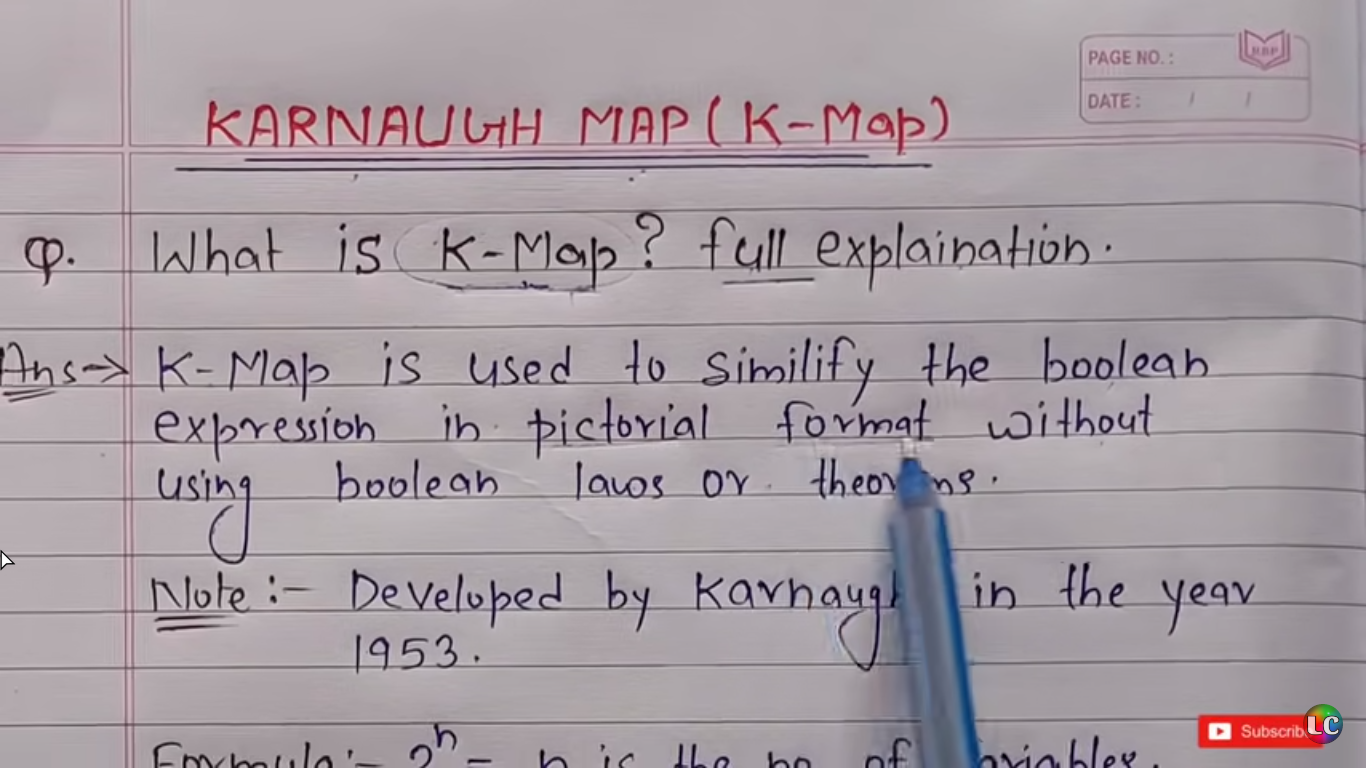 PAGE NO. :
DATE : / /
KARNAUGH MAP (K-Map)
Q. What is K-Map? full explaination.
Ans→ K-Map is used to similify the boolean
expression in pictorial format without
using boolean laws or
Note :- Developed by Karnaugh in the year
1953.
Formula:- 2ⁿ - n is the no. of variables.
Subscrib
LC